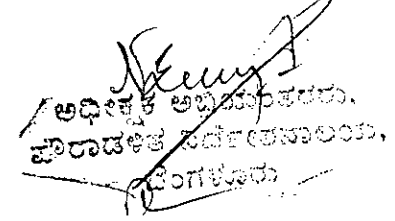 ಅಧೀಕ್ಷಕ ಅಭಿಯಂತರರು,
ಪೌರಾಡಳಿತ ನಿರ್ದೇಶನಾಲಯ,
ಬೆಂಗಳೂರು